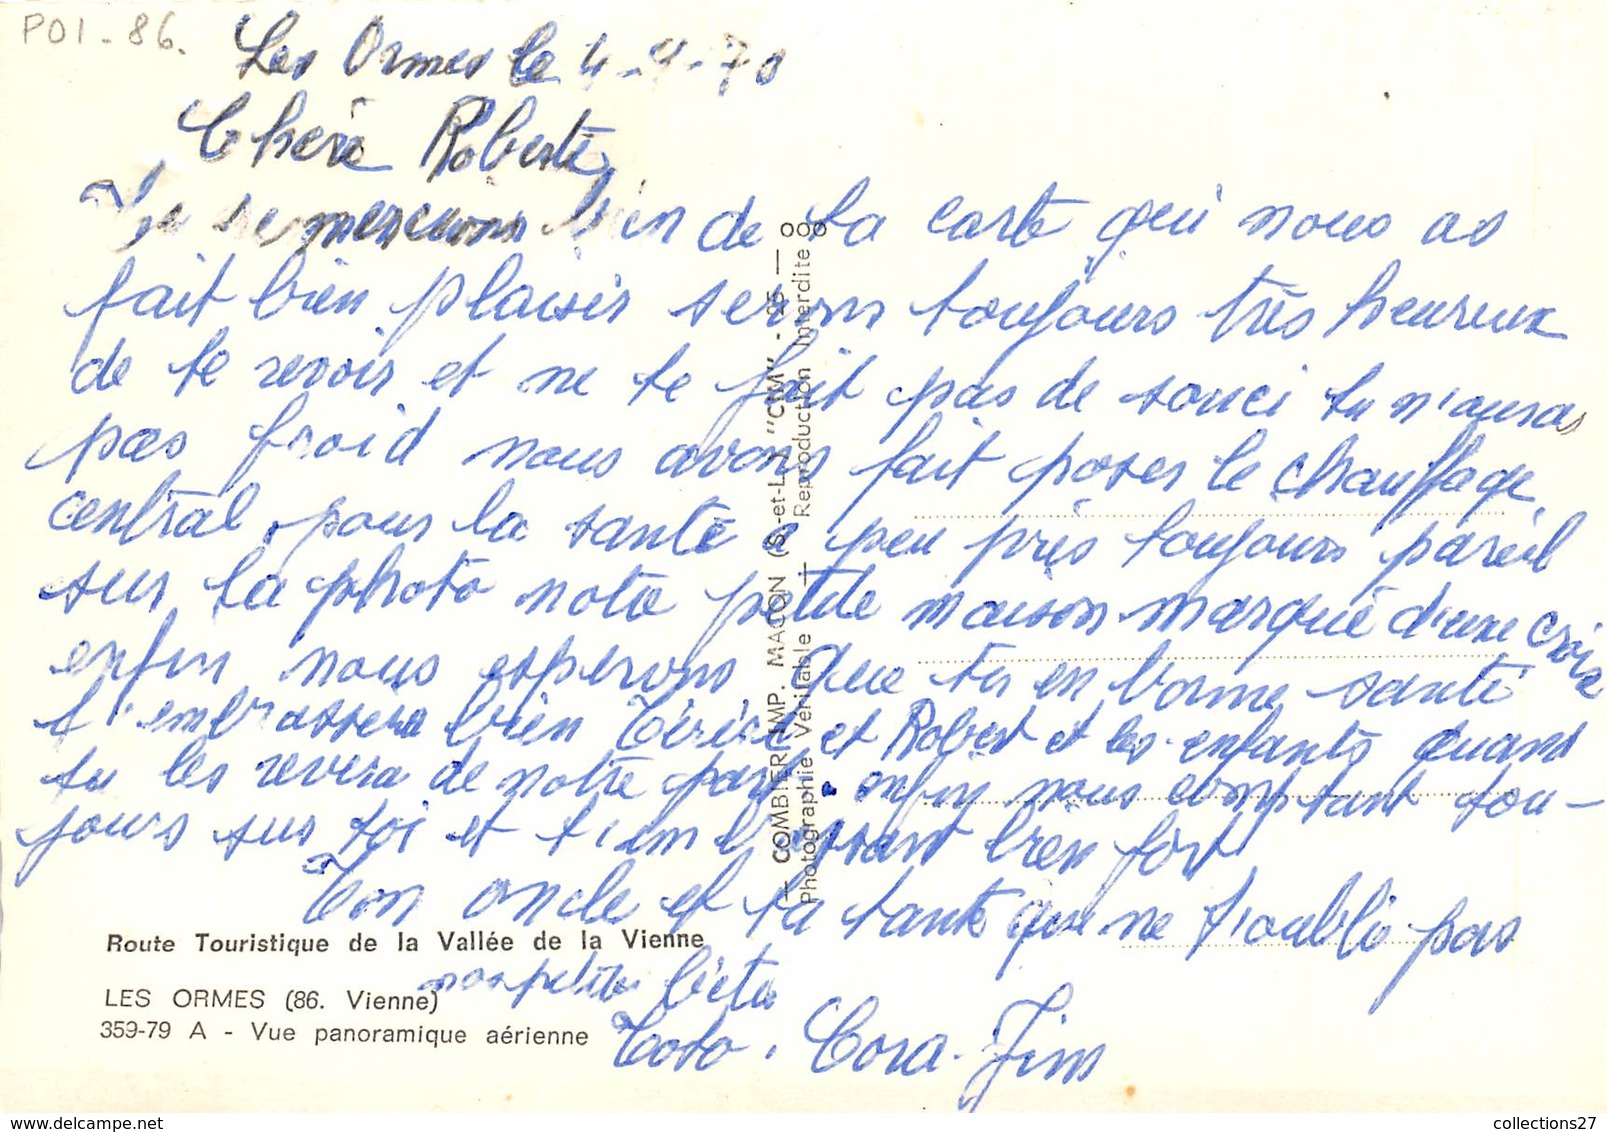 POI-86.
Les Ormes le 4-9-70
Chère Roberte
Je te mercions bien de ta carte qui nous as
fait bien plaisir serons toujours très heureux
de te revoir et ne te fait pas de souci tu n'auras
pas froid nous avons fait poser le chauffage
central, pour la santé a peu près toujours pareil
sur la photo notre petite maison marqué d'une croix
enfin nous esperons que tu en bonne santé
t'embrassera bien et Robert et les enfants quand
tu les revera de notre part enfin nous comptant tou-
jours sur toi et t'embrassant bien fort
Ton oncle et ta tante qui ne t'oublie pas
nos petites bêtes
Toto. Cora. Jim
Route Touristique de la Vallée de la Vienne
LES ORMES (86. Vienne)
359-79 A - Vue panoramique aérienne
— COMBIER IMP. MACON (S.-et-L.) "CIM" - 25 — 8
Photographie Véritable — Reproduction Interdite 8
delcampe.net
collections27